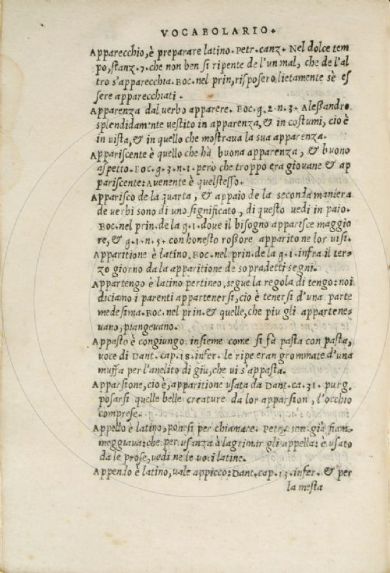 VOCABOLARIO.
Apparecchio, è preparare latino. Petr. canz. Nel dolce tem
po, stanz. 7. che non ben si ripente de l'un mal, che de l'al
tro s'apparecchia. Boc. nel prin, risposero lietamente sè es
sere apparecchiati.
Apparenza dal verbo apparere. Boc. g. 2. n. 3. Alessandro
splendidamente vestito in apparenza, & in costumi, cio è
in vista, & in quello che mostrava la sua apparenza.
Appariscente è quello che hà buona apparenza, & buono
aspetto. Boc. g. 3. n. 1. però che troppo era giovane & ap
pariscente: Avenente è quelstesso.
Apparisco de la quarta, & appaio de la seconda maniera
de verbi sono di uno significato, di questo vedi in paio.
Boc. nel prin. de la g. 1. dove il bisogno apparisce maggio
re, & g. 1. n. 5. con honesto roßore apparito ne lor visi.
Apparitione è latino. Boc. nel prin. de la g. 1. infra il ter-
zo giorno da la apparitione de sopradetti segni.
Appartengo è latino pertineo, segue la regola di tengo: noi
diciamo i parenti appartenersi, cio è tenersi d'una parte
medesima. Boc. nel prin. & quelle, che piu gli appartene-
vano, piangevano.
Appasto è congiungo insieme come si fà pasta con pasta,
voce di Dant. cap. 18. infer. le ripe eran grommate d'una
muffa per l'anelito di giu, che vi s'appasta.
Apparsione, cio è, apparitione usata da Dant. ca. 31. purg.
posarsi quelle belle creature da lor apparsion, l'occhio
comprese.
Appello è latino, ponsi per chiamare. già fiam-
meggiava: che per usanza à lagrimar gli appella: è usato
da le prose, vedi ne le voci latine.
Appendo è latino, vale appicco: Dant. cap. 13. infer. & per
la mesta